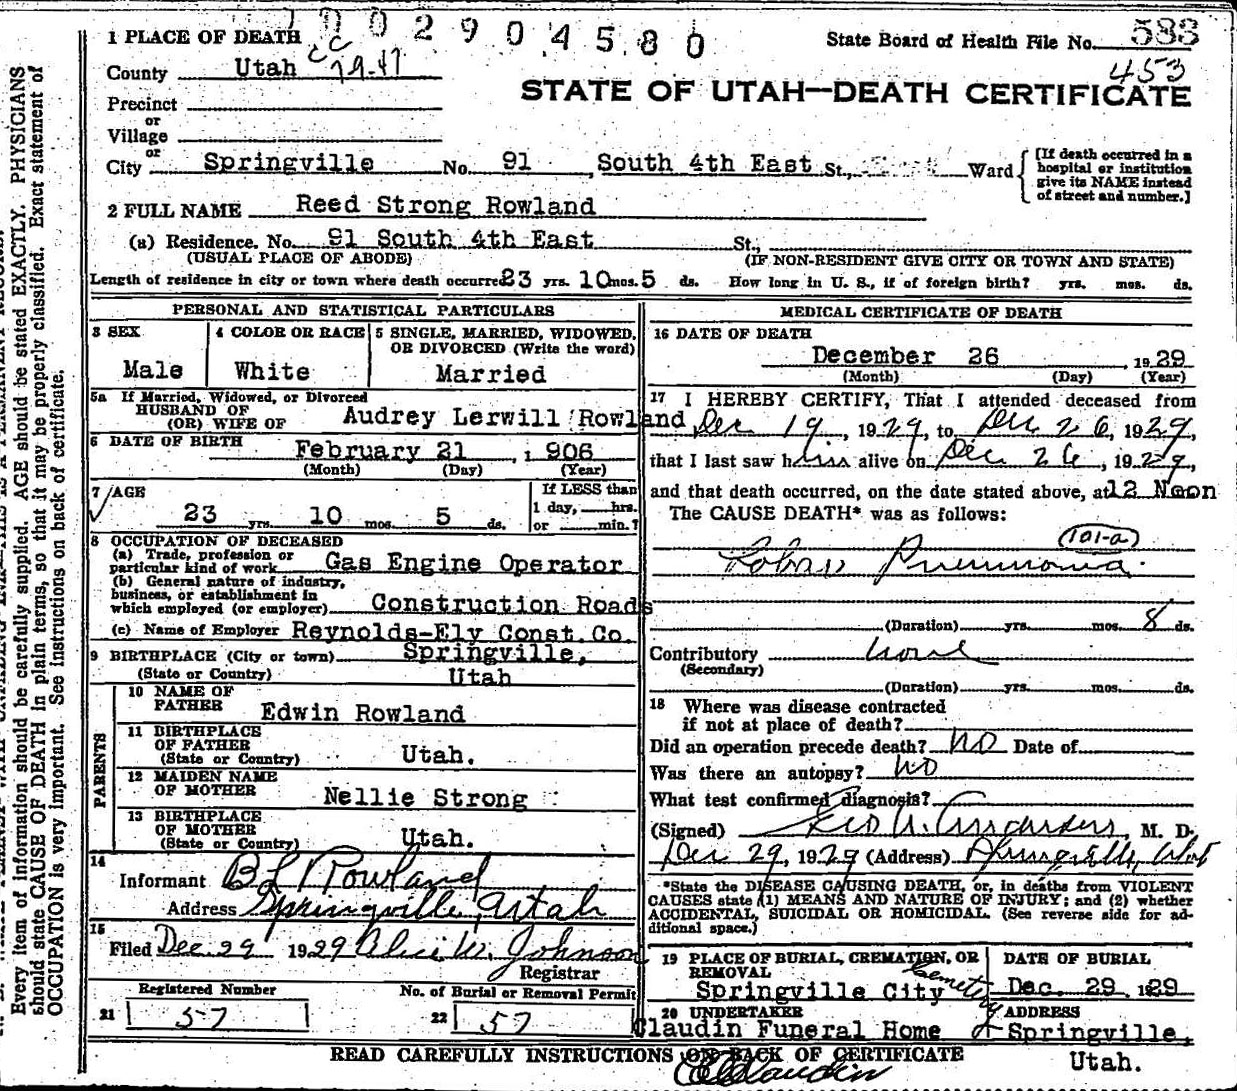 1 0 0 2 9 0 4 5 8 0
1 PLACE OF DEATH
State Board of Health File No. 583
County Utah CC 79-47
453
STATE OF UTAH—DEATH CERTIFICATE
Precinct
or
Village
or
City Springville No. 91, South 4th East St., Ward
[If death occurred in a hospital or institution give its NAME instead of street and number.]
2 FULL NAME Reed Strong Rowland
(a) Residence. No. 91 South 4th East St.,
(USUAL PLACE OF ABODE) (IF NON-RESIDENT GIVE CITY OR TOWN AND STATE)
Length of residence in city or town where death occurred 23 yrs. 10 mos. 5 ds. How long in U. S., if of foreign birth? yrs. mos. ds.
PERSONAL AND STATISTICAL PARTICULARS
3 SEX
Male
4 COLOR OR RACE
White
5 SINGLE, MARRIED, WIDOWED,
OR DIVORCED (Write the word)
Married
5a If Married, Widowed, or Divorced
HUSBAND OF
(OR) WIFE OF Audrey Lerwill Rowland
6 DATE OF BIRTH
February 21, 1906
(Month) (Day) (Year)
7 AGE
23 yrs. 10 mos. 5 ds.
If LESS than
1 day, hrs.
or min.?
8 OCCUPATION OF DECEASED
(a) Trade, profession or
particular kind of work Gas Engine Operator
(b) General nature of industry,
business, or establishment in
which employed (or employer) Construction Roads
(c) Name of Employer Reynolds-Ely Const. Co.
9 BIRTHPLACE (City or town) Springville,
(State or Country) Utah
PARENTS
10 NAME OF
FATHER Edwin Rowland
11 BIRTHPLACE
OF FATHER
(State or Country) Utah.
12 MAIDEN NAME
OF MOTHER Nellie Strong
13 BIRTHPLACE
OF MOTHER
(State or Country) Utah.
14
Informant B L Rowland
Address Springville, Utah
15
Filed Dec. 29 1929 Alice W. Johnson
Registrar
Registered Number
21 57
No. of Burial or Removal Permit
22 57
MEDICAL CERTIFICATE OF DEATH
16 DATE OF DEATH
December 26 1929
(Month) (Day) (Year)
17 I HEREBY CERTIFY, That I attended deceased from
Dec 19, 1929, to Dec 26, 1929,
that I last saw him alive on Dec 26, 1929,
and that death occurred, on the date stated above, at 12 Noon
The CAUSE DEATH* was as follows:
(101-a)
Lobar Pneumonia.
(Duration) yrs. mos. 8 ds.
Contributory none
(Secondary)
(Duration) yrs. mos. ds.
18 Where was disease contracted
if not at place of death?
Did an operation precede death? No Date of
Was there an autopsy? No
What test confirmed diagnosis?
(Signed) Geo A. Anderson, M. D.
Dec 29, 1929 (Address) Springville, Utah
*State the DISEASE CAUSING DEATH, or, in deaths from VIOLENT
CAUSES state (1) MEANS AND NATURE OF INJURY; and (2) whether
ACCIDENTAL, SUICIDAL OR HOMICIDAL. (See reverse side for ad-
ditional space.)
19 PLACE OF BURIAL, CREMATION, OR
REMOVAL
Springville City Cemetery
DATE OF BURIAL
Dec. 29. 1929
20 UNDERTAKER
Claudin Funeral Home
ADDRESS
Springville,
Utah.
READ CAREFULLY INSTRUCTIONS ON BACK OF CERTIFICATE
Claudin
Every item of information should be carefully supplied. AGE should be stated EXACTLY. PHYSICIANS
should state CAUSE OF DEATH in plain terms, so that it may be properly classified. Exact statement of
OCCUPATION is very important. See instructions on back of certificate.